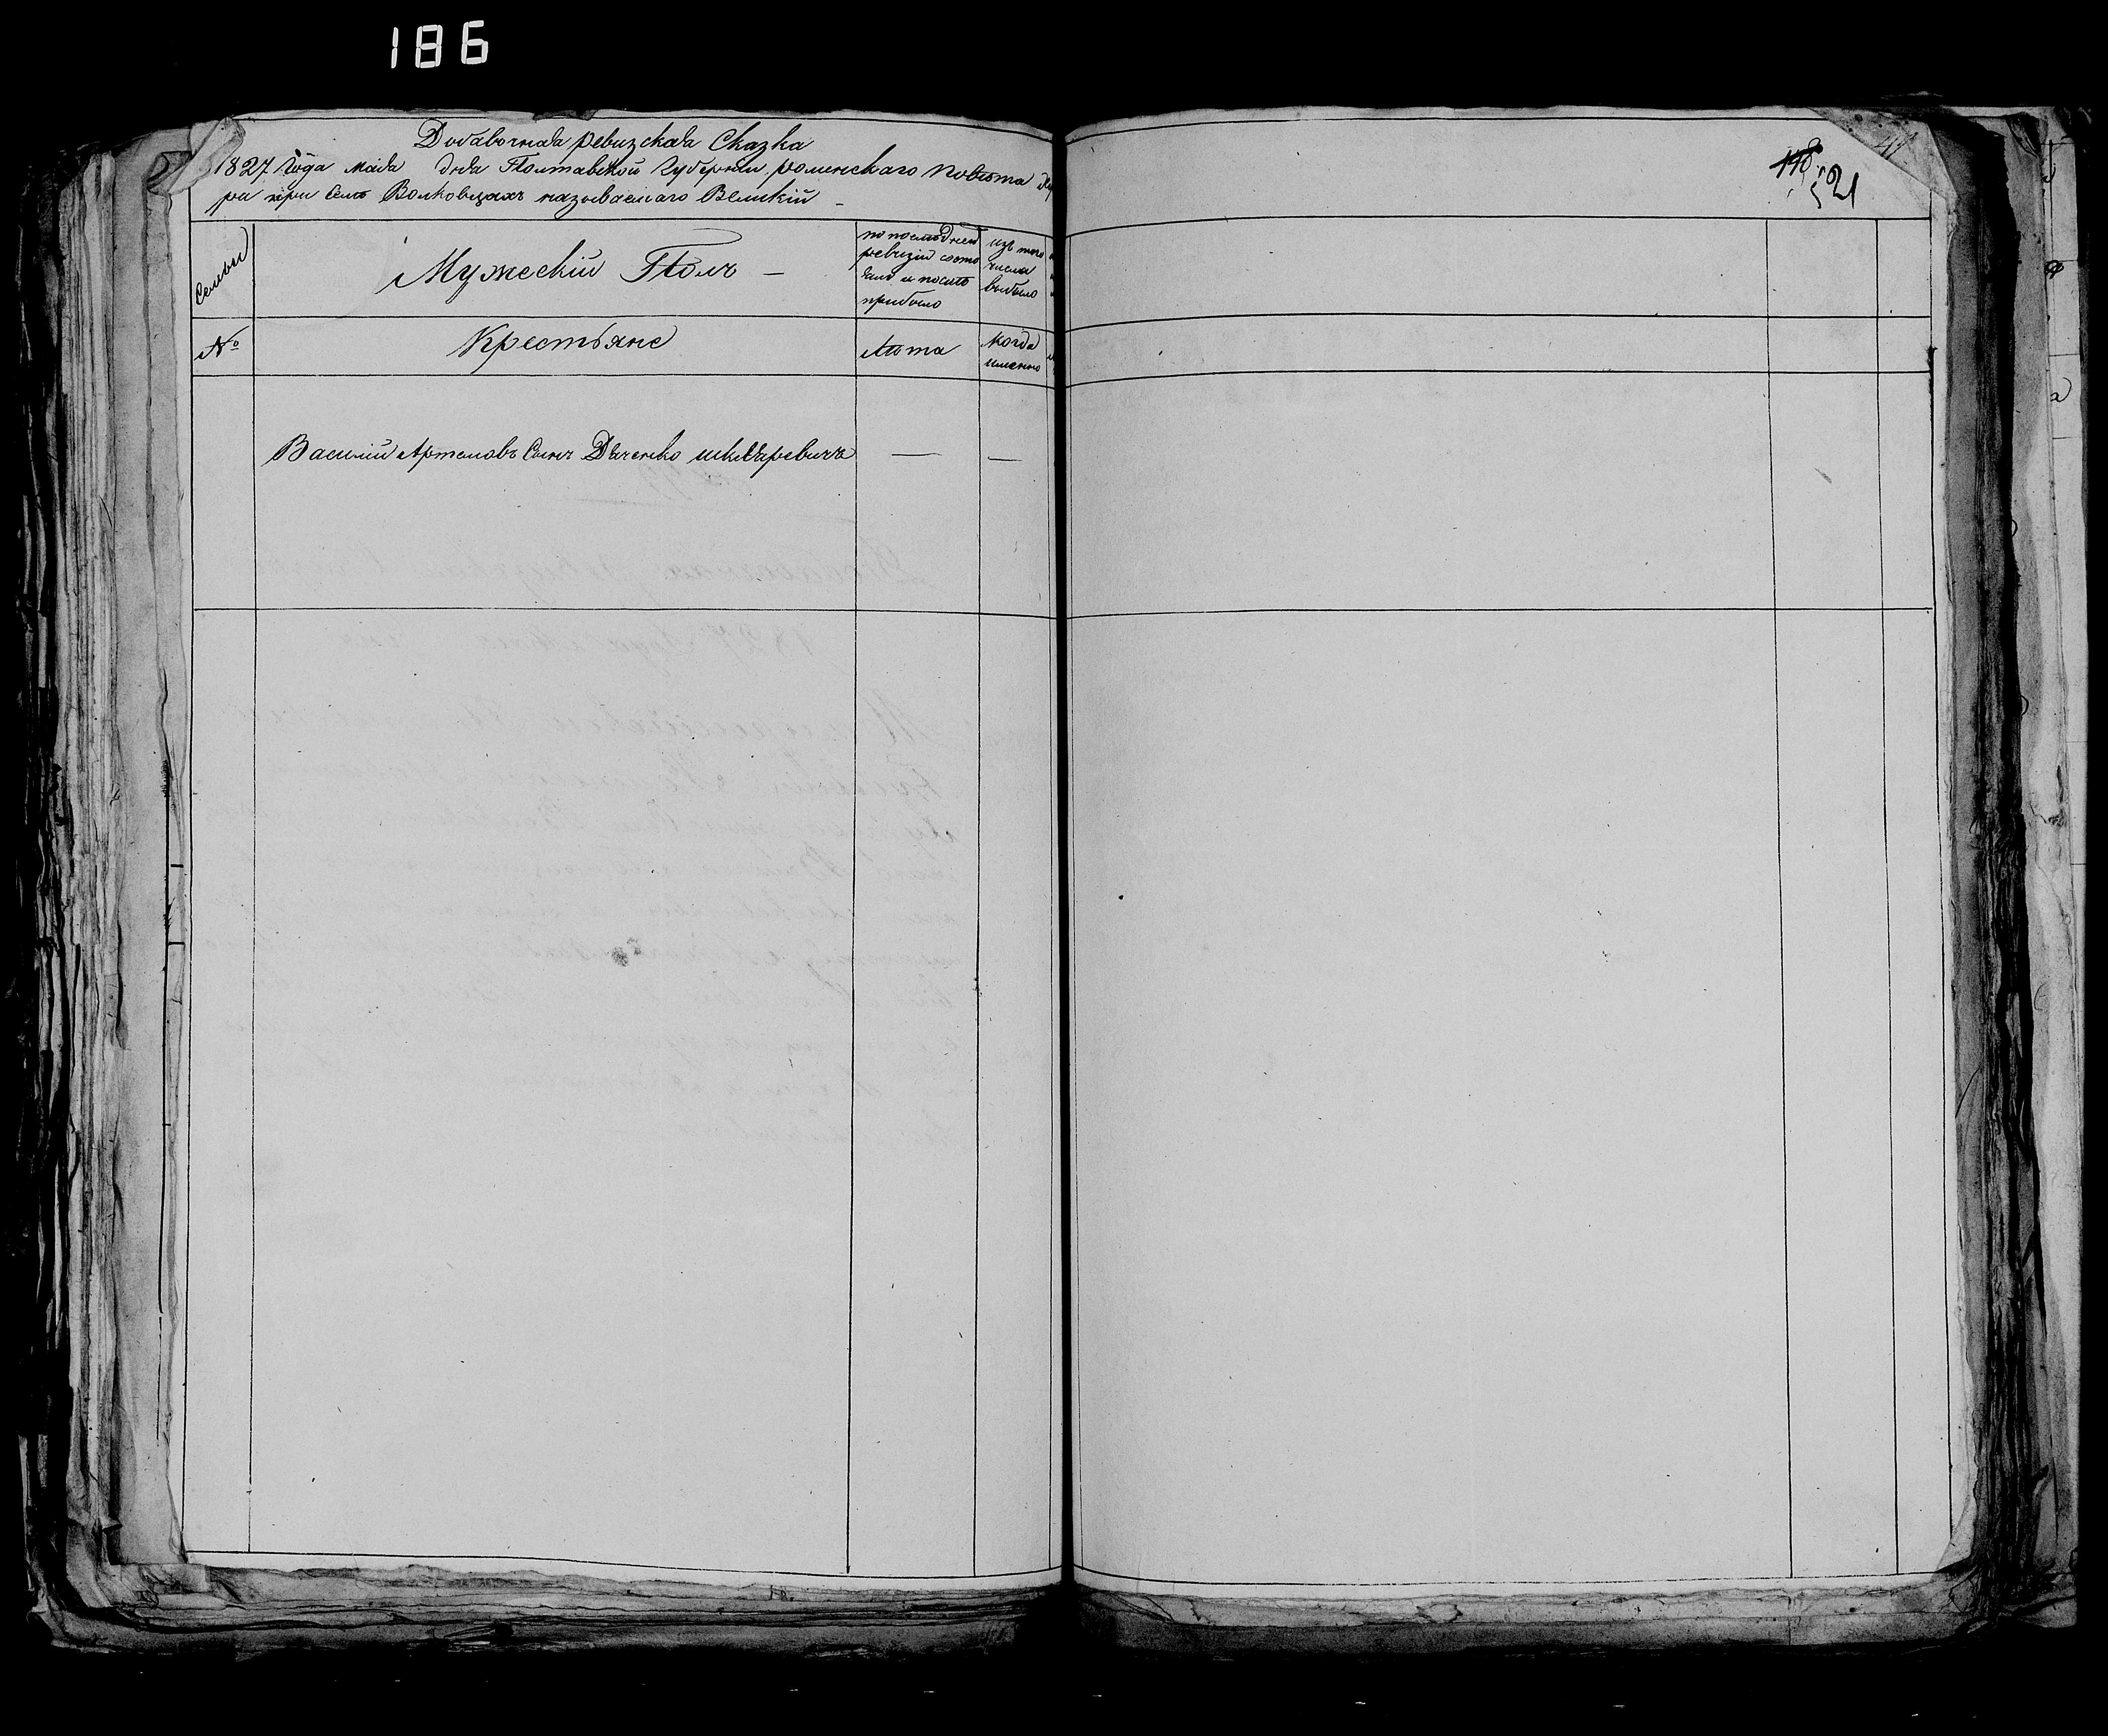 186
Добавочная ревизская Сказка
1827 года мaiя дня Полтавской Губернии роменскаго повѣта
ра при Селѣ Волковцахъ называемаго Великiй
118
21
Семьи
Мужескiй Полъ —
по последней
ревизiи состо
яло и послѣ
прибыло
изъ того
числа
выбыло
№
Крестьяне
Лѣта
Когда
именно
Василiй Артемовъ Сынъ Дяченко — —